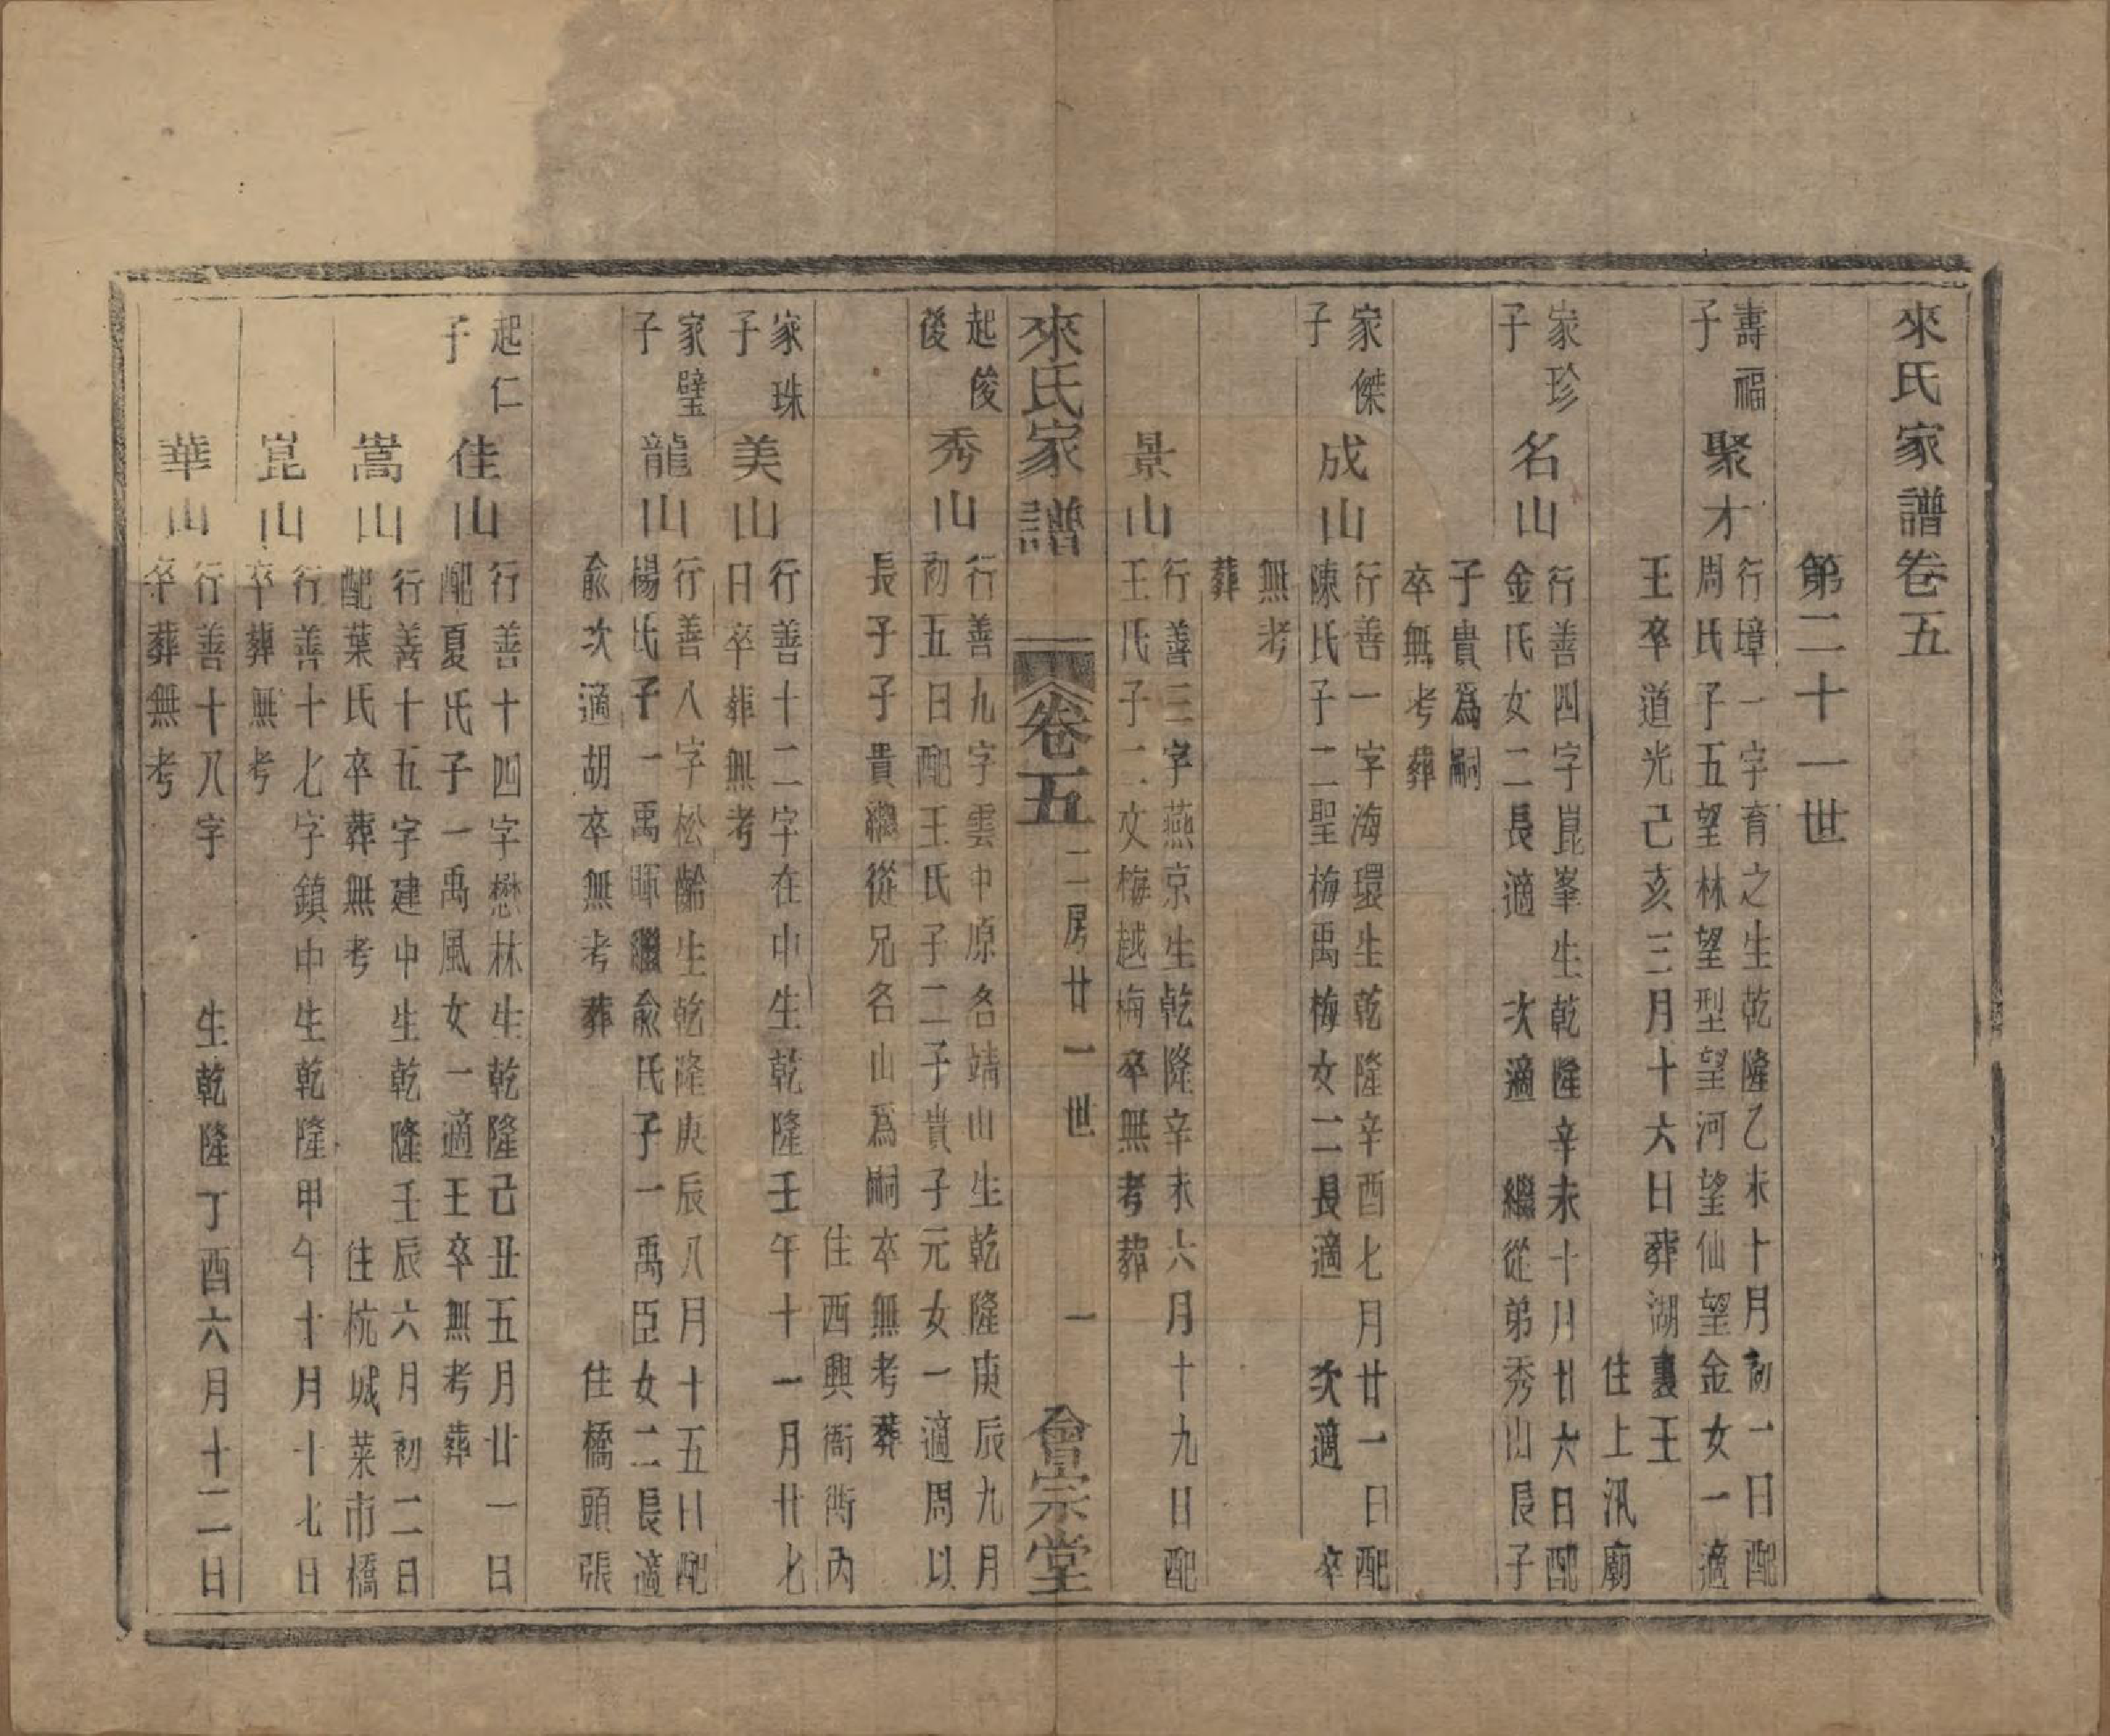 來氏家譜卷五
第二十一世
壽福
子
聚才
行墇一字育之生乾隆乙未十月初一日配
周氏子五望林望型望河望仙望金女一適
王卒道光己亥三月十六日葬湖裏王
住上汛廟
家珍
子
名山
行善四字崑峯生乾隆辛未十月廿六日配
金氏女二長適　次適　繼從弟秀山長子
子貴爲嗣
卒無考葬
家傑
子
成山
行善一字海環生乾隆辛酉七月廿一日配
陳氏子二聖梅禹梅女二長適　次適　卒
無考
葬
景山
行善三字燕京生乾隆辛未六月十九日配
王氏子二文梅越梅卒無考葬
來氏家譜
卷五
二房廿一世
一
會宗堂
起俊
後
秀山
行善九字雲中原名靖山生乾隆庚辰九月
初五日配王氏子二子貴子元女一適周以
長子子貴繼從兄名山爲嗣卒無考葬
住西興衙衖內
家珠
子
美山
行善十二字在中生乾隆壬午十一月廿七
日卒葬無考
家璧
子
龍山
行善八字松齡生乾隆庚辰八月十五日配
楊氏子一禹暉繼俞氏子一禹臣女二長適
俞次適胡卒無考葬
住橋頭張
起仁
子
佳山
行善十四字懋林生乾隆己丑五月廿一日
配夏氏子一禹風女一適王卒無考葬
嵩山
行善十五字建中生乾隆壬辰六月初二日
配葉氏卒葬無考
住杭城菜市橋
崑山
行善十七字鎮中生乾隆甲午十月十七日
卒葬無考
華山
行善十八字　生乾隆丁酉六月十二日
卒葬無考